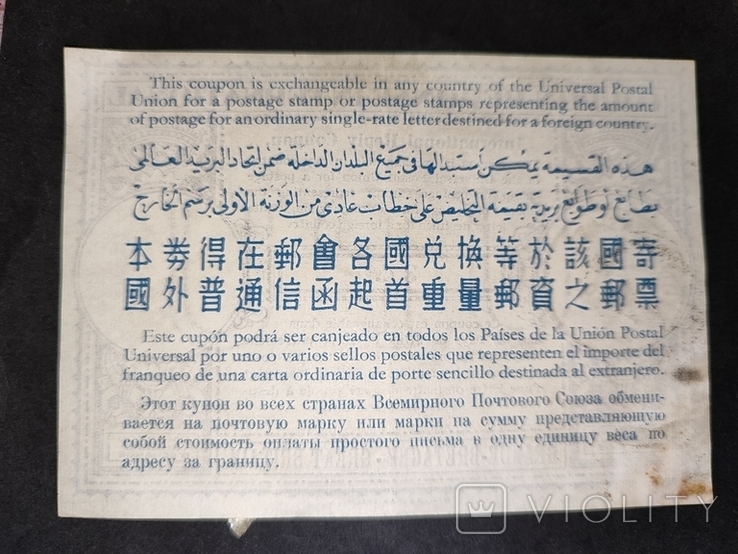 This coupon is exchangeable in any country of the Universal Postal
Union for a postage stamp or postage stamps representing the amount
of postage for an ordinary single-rate letter destined for a foreign country.
هذه القسيمة يمكن استبدالها في جميع البلدان الداخلة ضمن اتحاد البريد العالمى
بطابع او طوابع بريدية بقيمة التخليص على خطاب عادى من الوزنة الأولى برسم الخارج
本券得在郵會各國兌換等於該國寄
國外普通信函起首重量郵資之郵票
Este cupón podrá ser canjeado en todos los Países de la Unión Postal
Universal por uno o varios sellos postales que representen el importe del
franqueo de una carta ordinaria de porte sencillo destinada al extranjero.
Этот купон во всех странах Всемирного Почтового Союза обмени-
вается на почтовую марку или марки на сумму представляющую
собой стоимость оплаты простого письма в одну единицу веса по
адресу за границу.
VIOLITY